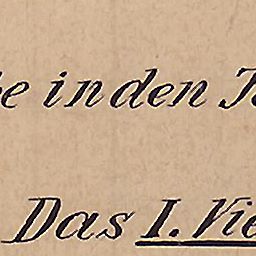 e in den
Das I. Vie